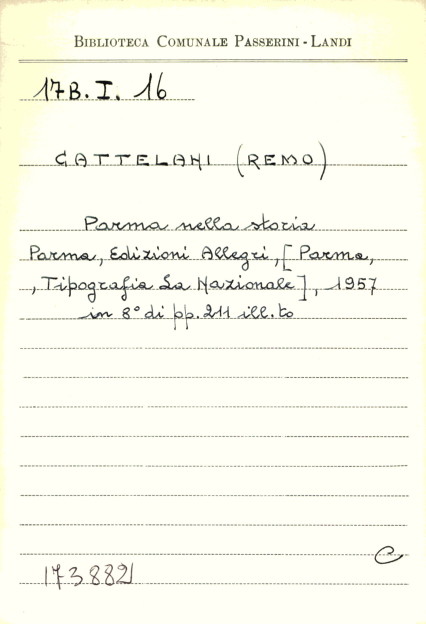 BIBLIOTECA COMUNALE PASSERINI-LANDI
17B.I. 16
CATTELANI (REMO)
Parma nella storia
Parma, Edizioni Allegri, [Parma,
, Tipografia La Nazionale], 1957
in 8° di pp. 211 ill.to
C
173882